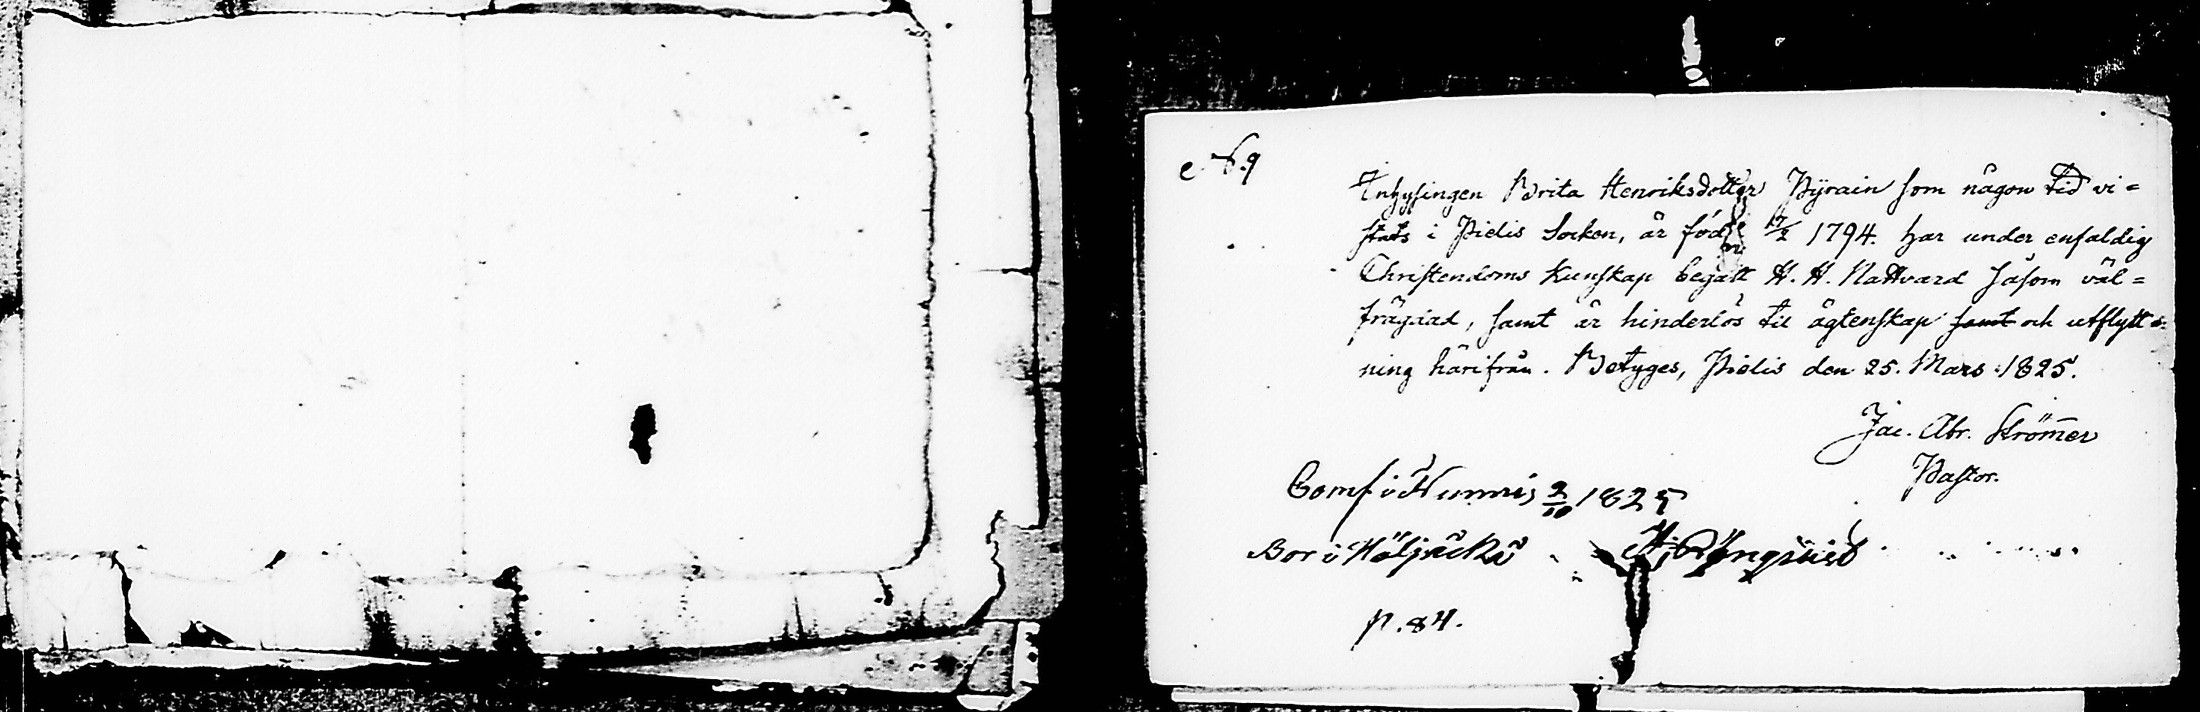 No. 9
Inhysingen Brita Henriksdotter Pyrain som någon tid vi=
stats i Pielis Socken, är född 17/2 1794. har under enfaldig
Christendoms kunskap begått H. H. Nattvard såsom väl=
frägdad, samt är hinderlös til ägtenskap samt och utflytt=
ning härifrån. Betyges, Pielis den 25. Mars 1825.
Jac. Abr. Strömer
Pastor.
Comf i Nurmis 2/10 1825
Bor i Höljäckä
p. 84.